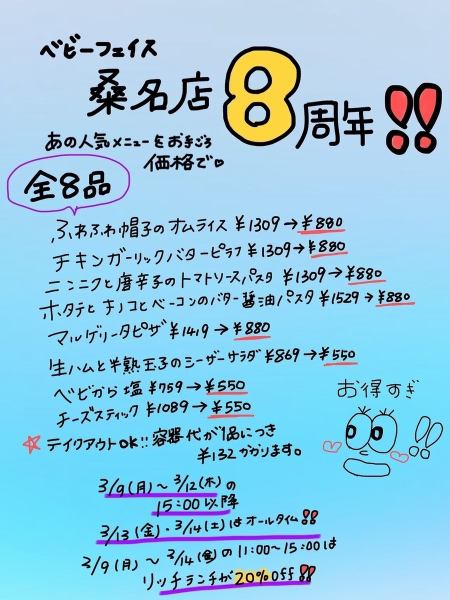 ベビーフェイス
桑名店8周年!!
あの人気メニューをおきごろ
価格で♡
全8品
ふわふわ帽子のオムライス ¥1309→¥880
チキンガーリックバターピラフ ¥1309→¥880
ニンニクと唐辛子のトマトソースパスタ ¥1309→¥880
ホタテとキノコとベーコンのバター醤油パスタ ¥1529→¥880
マルゲリータピザ ¥1419→¥880
生ハムと半熟玉子のシーザーサラダ ¥869→¥550
ベビから塩 ¥759→¥550
チーズスティック ¥1089→¥550
☆テイクアウトOK!! 容器代が1品につき
¥132かかります。
お得すぎ!!
3/9(月)～3/12(木)の
15:00以降
3/13(金)・3/14(土)はオールタイム!!
3/9(月)～3/14(金)の11:00～15:00は
リッチランチが20%off!!